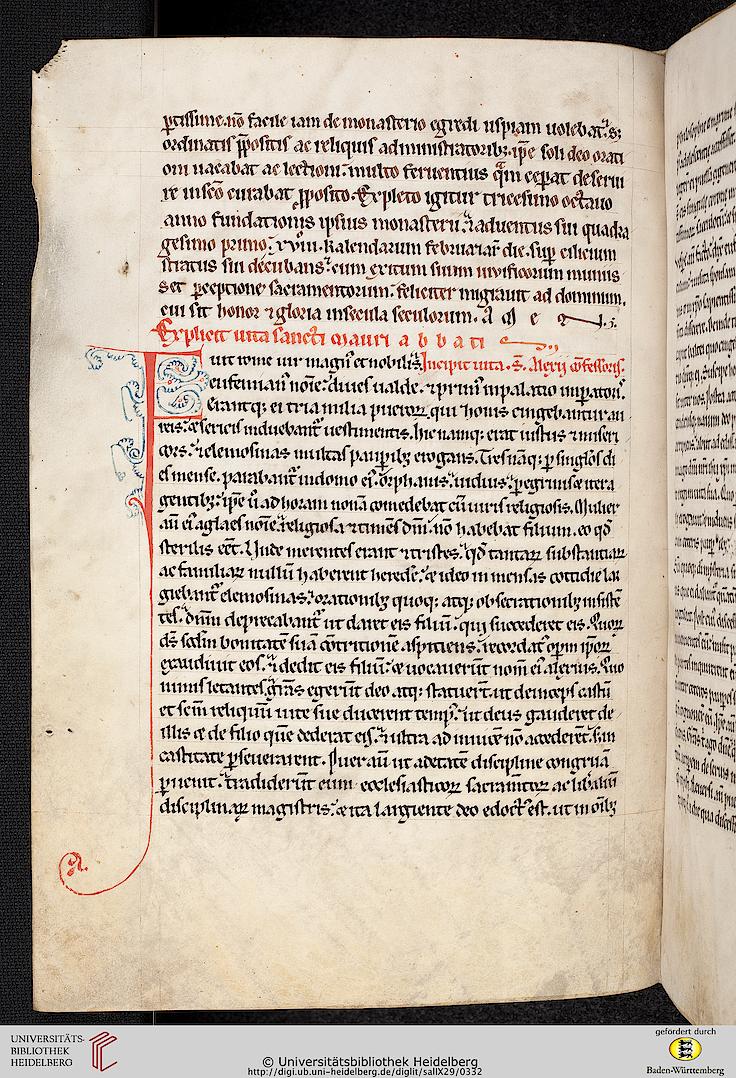 ꝑtissime. nō facile iam de monasterio egredi uspiam uolebat. Sꝫ
ordinatis p̄positis ac reliquis administratoribꝫ. ip̄e soli deo orati
oni uacabat ac lectioni. multo feruentius quā ceperat deserui
re in seo curabat p̄posito. Expleto igitur tricesimo octauo
anno fundationis ipsius monasterii. ⁊ aduentus sui quadra
gesimo primo. xviii. kalendarum februariar̄ die. suꝑ cilicium
stratus sui decubans. cum exitum suum uiuificorum munis
set ꝑceptione sacramentorum. feliciter migrauit ad dominum.
cui sit honor ⁊ gloria in secula seculorum. A m e n.
Explicit uita sancti Mauri a b b a ti s
Fuit rome uir magn᷒ et nobilis. Incipit uita. S. Alexii ꝯfessoris.
eufemian᷒ noīe. diues ualde. ⁊ prim᷒ in palatio imꝑatoris.
Erantqꝫ ei tria milia pueroꝝ. qui zonis cingebantur au
reis. ⁊ sericis induebant᷑ uestimentis. Hic namqꝫ erat iustus ⁊ miseri
cors. ⁊ elemosinas multas pauꝑibꝫ erogans. Tres nāqꝫ ꝑ singlōs di
es mense. parabant᷑ in domo ei᷒. orphanis. uiduis. ꝑegrinis ⁊ itera
gentibꝫ. ip̄e ū ad horam nonā comedebat cū uiris religiosis. Mulier
aū ei᷒ aglaes noīe. religiosa ⁊ timēs dm̄. nō habebat filium. eo qd̄
sterilis eēt. Unde merentes erant ⁊ tristes. qd̄ tantaꝝ substantiaꝝ
ac familiaꝝ nullū haberent heredē. ⁊ ideo in mensas cottidie lar
giebant᷑ elemosinas. orationibꝫ quoqꝫ atqꝫ obsecrationibꝫ insistē
tes. dnm̄ deprecabant᷑ ut daret eis filiū. qui succederet eis. Quoꝝ
ds̄ scdm̄ bonitatē suā ꝯtritionē aspiciens. recordat᷒ oꝑum ip̄oꝝ
exaudiuit eos. ⁊ dedit eis filiū. ⁊ uocauerūt nom̄ ei᷒ alexius. Quo
nimis letantes. grās egerūt deo atqꝫ statuerūt. ut deinceps castū
et scm̄ reliquū uite sue ducerent temp᷒. ut deus gauderet de
illis ⁊ de filio quē dederat eis. ⁊ ultra ad inuicē nō accederēt. s; in
castitate ꝑseuerarent. Puer aū ut ad etatē discipline congruā
ꝑuenit. tradiderūt eum ecclesiasticoꝝ sacramtoꝝ ac lib̄aliū
disciplinaꝝ magistris. ⁊ ita largiente deo edoct᷒ est. ut in om̄ibꝫ
UNIVERSITÄTS-
BIBLIOTHEK
HEIDELBERG
© Universitätsbibliothek Heidelberg
http://digi.ub.uni-heidelberg.de/diglit/salIX29/0332
gefördert durch
Baden-Württemberg